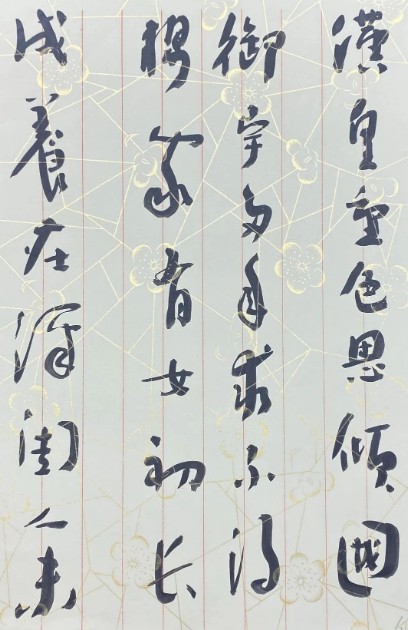 漢皇重色思傾國
御宇多年求不得
楊家有女初長
成養在深閨人未